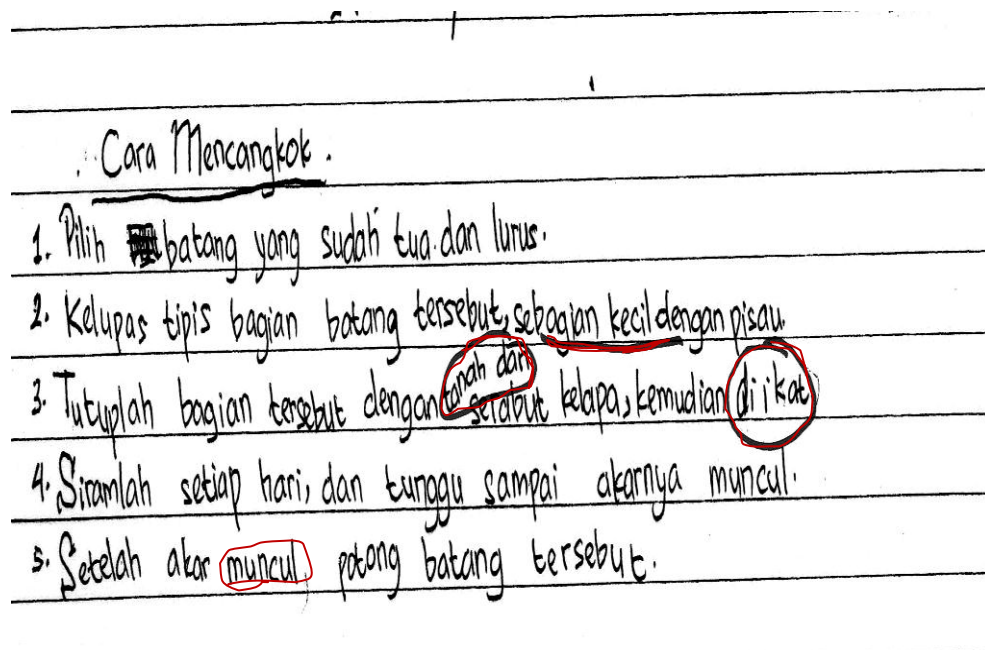 Cara Mencangkok.
1. Pilih batang yang sudah tua dan lurus.
2. Kelupas tipis bagian batang tersebut, sebagian kecil dengan pisau.
3. Tutuplah bagian tersebut dengan tanah dan serabut kelapa, kemudian di ikat
4. Siramlah setiap hari, dan tunggu sampai akarnya muncul.
5. Setelah akar muncul potong batang tersebut.